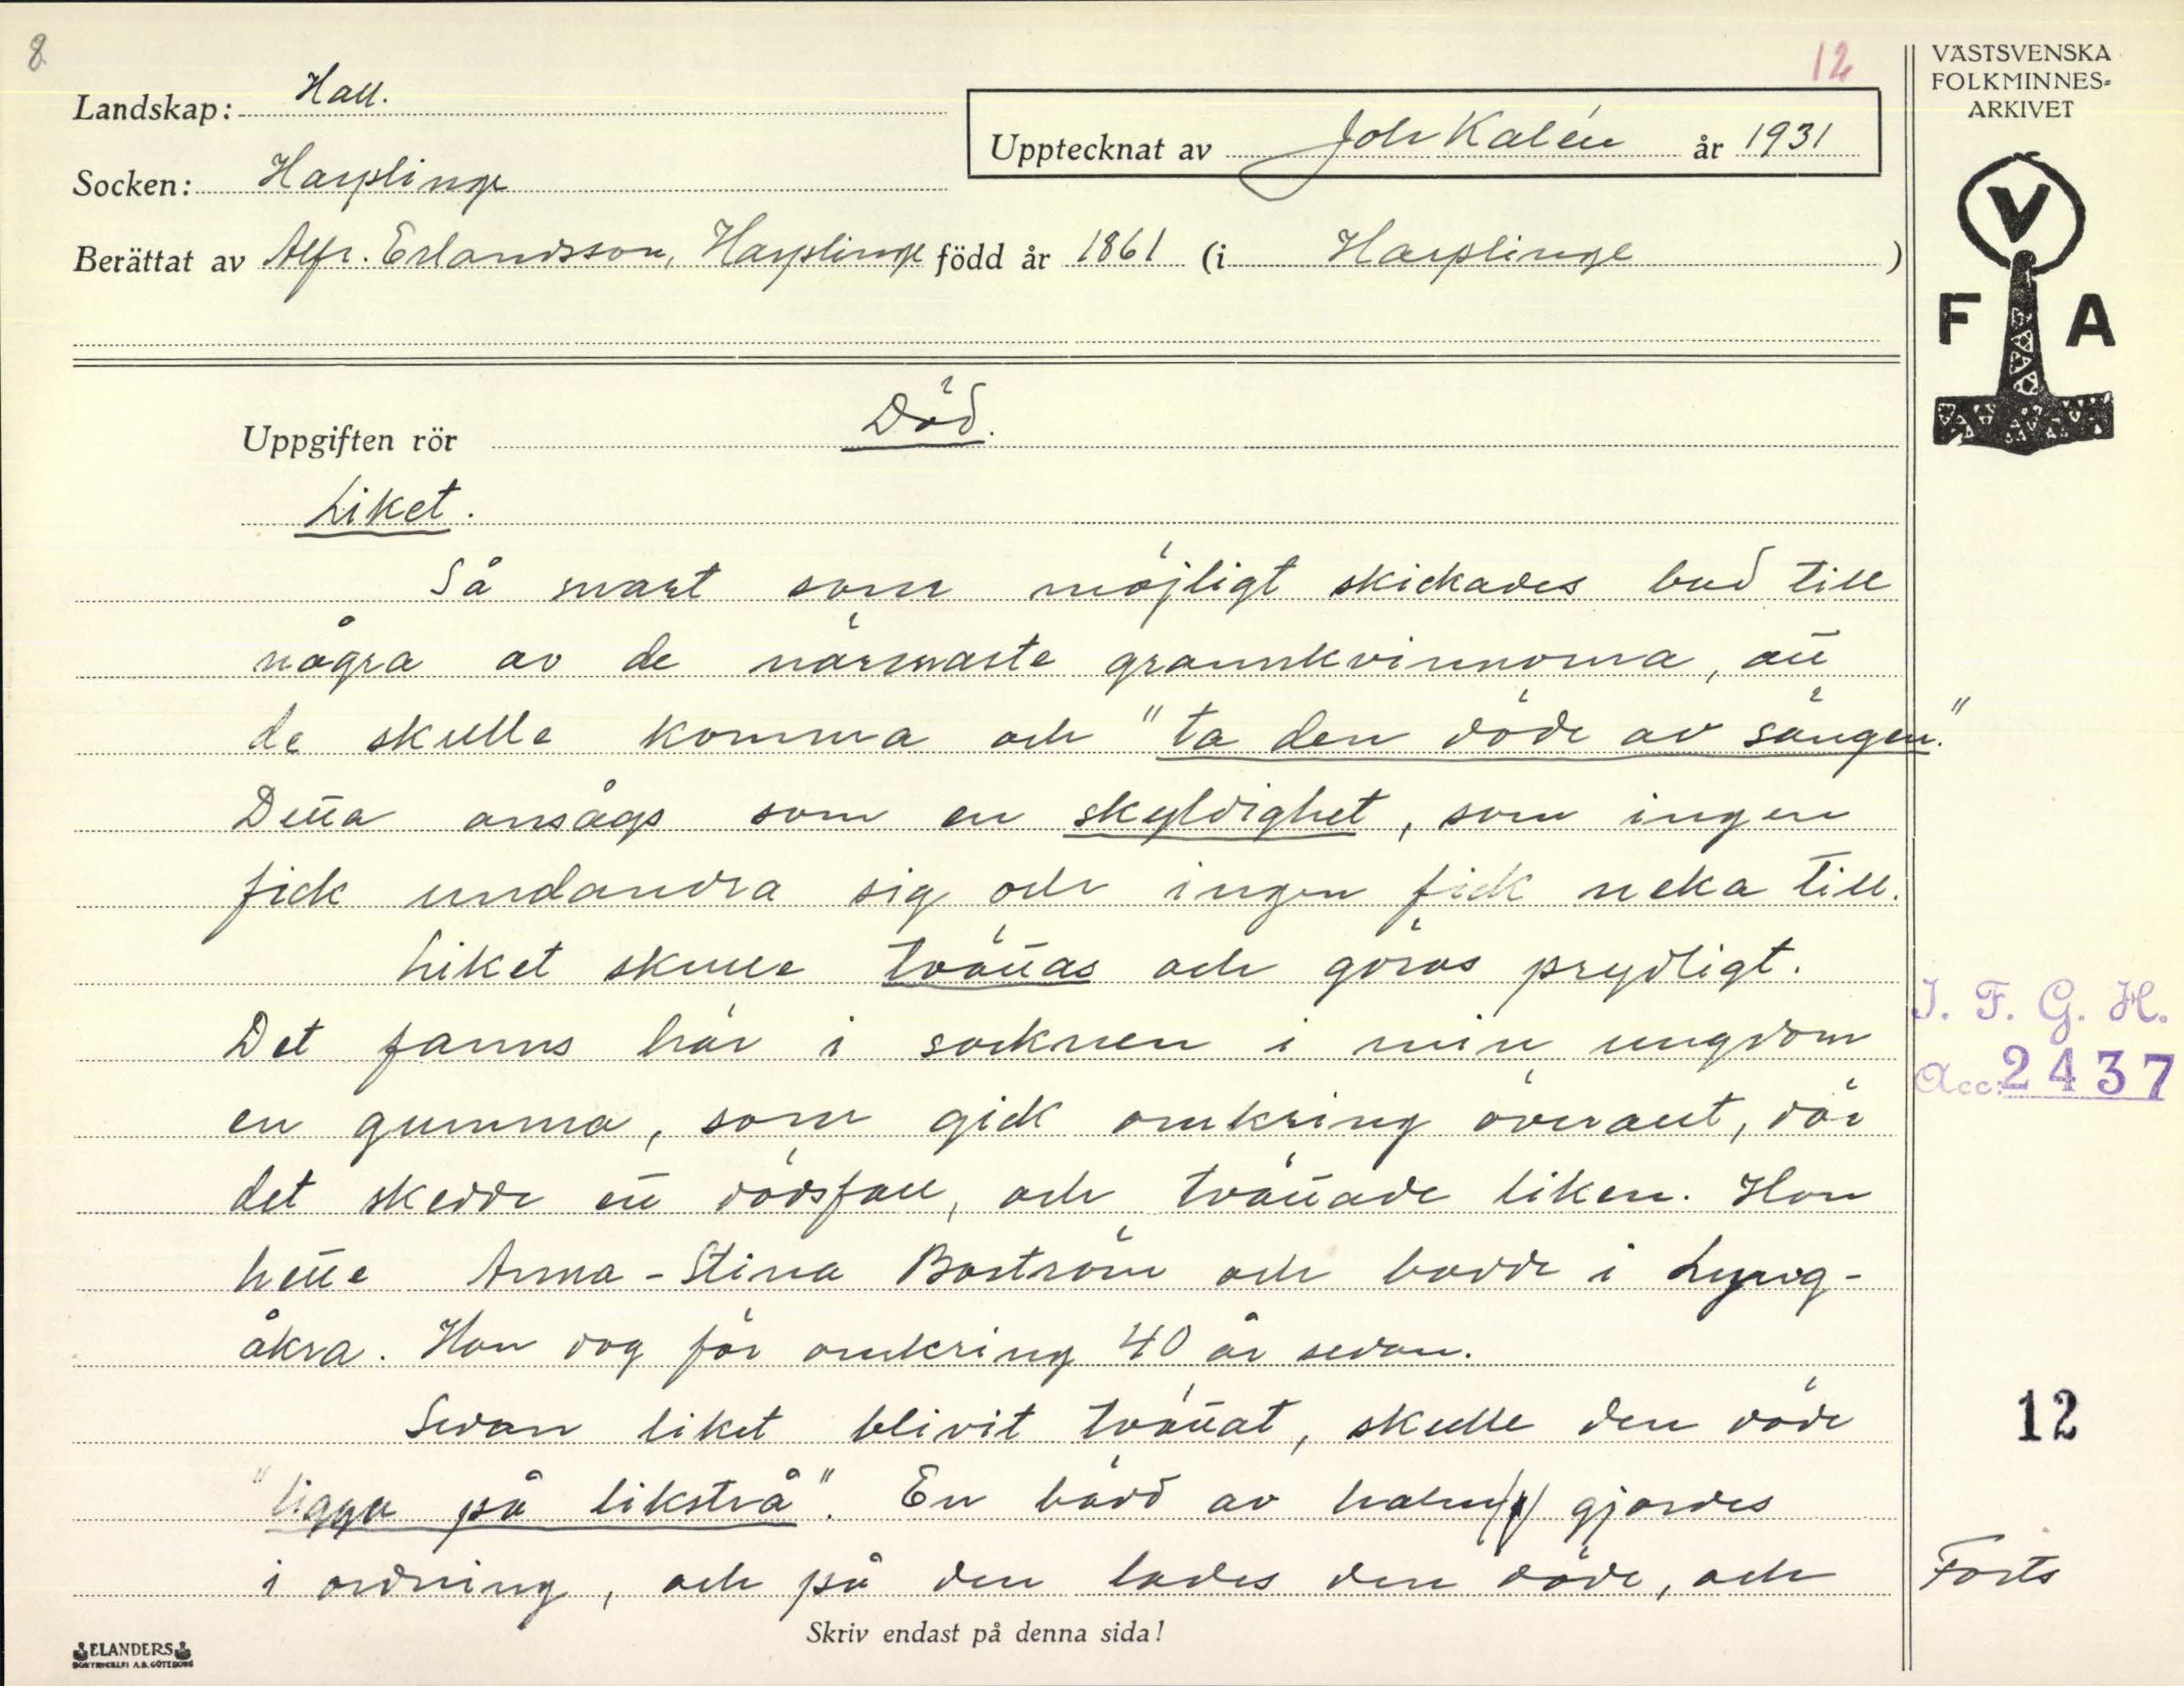 8
12
Landskap: Hall.
Upptecknat av Joh Kalén år 1931
Socken: Harplinge
Berättat av Alfr. Erlandsson, Harplinge född år 1861 (i Harplinge)
VÄSTSVENSKA
FOLKMINNES-
ARKIVET
V
F A
Uppgiften rör Död.
Liket.
Så snart som möjligt skickades bud till
några av de närmaste grannkvinnorna, att
de skulle komma och "ta den döde av sängen."
Detta ansågs som en skyldighet, som ingen
fick undandra sig och ingen fick neka till.
Liket skulle tvättas och göras prydligt.
Det fanns här i socknen i min ungdom
en gumma, som gick omkring överallt, där
det skedde ett dödsfall, och tvättade liken. Hon
hette Anna-Stina Boström och bodde i Lyng-
åkra. Hon dog för omkring 40 år sedan.
Sedan liket blivit tvättat, skulle den döde
"ligga på likstrå". En bädd av halm gjordes
i ordning, och på den lades den döde, och
I. F. G. H.
Acc. 2437
12
Forts
Skriv endast på denna sida!
ELANDERS
BOKTRYCKERI A.B. GÖTEBORG